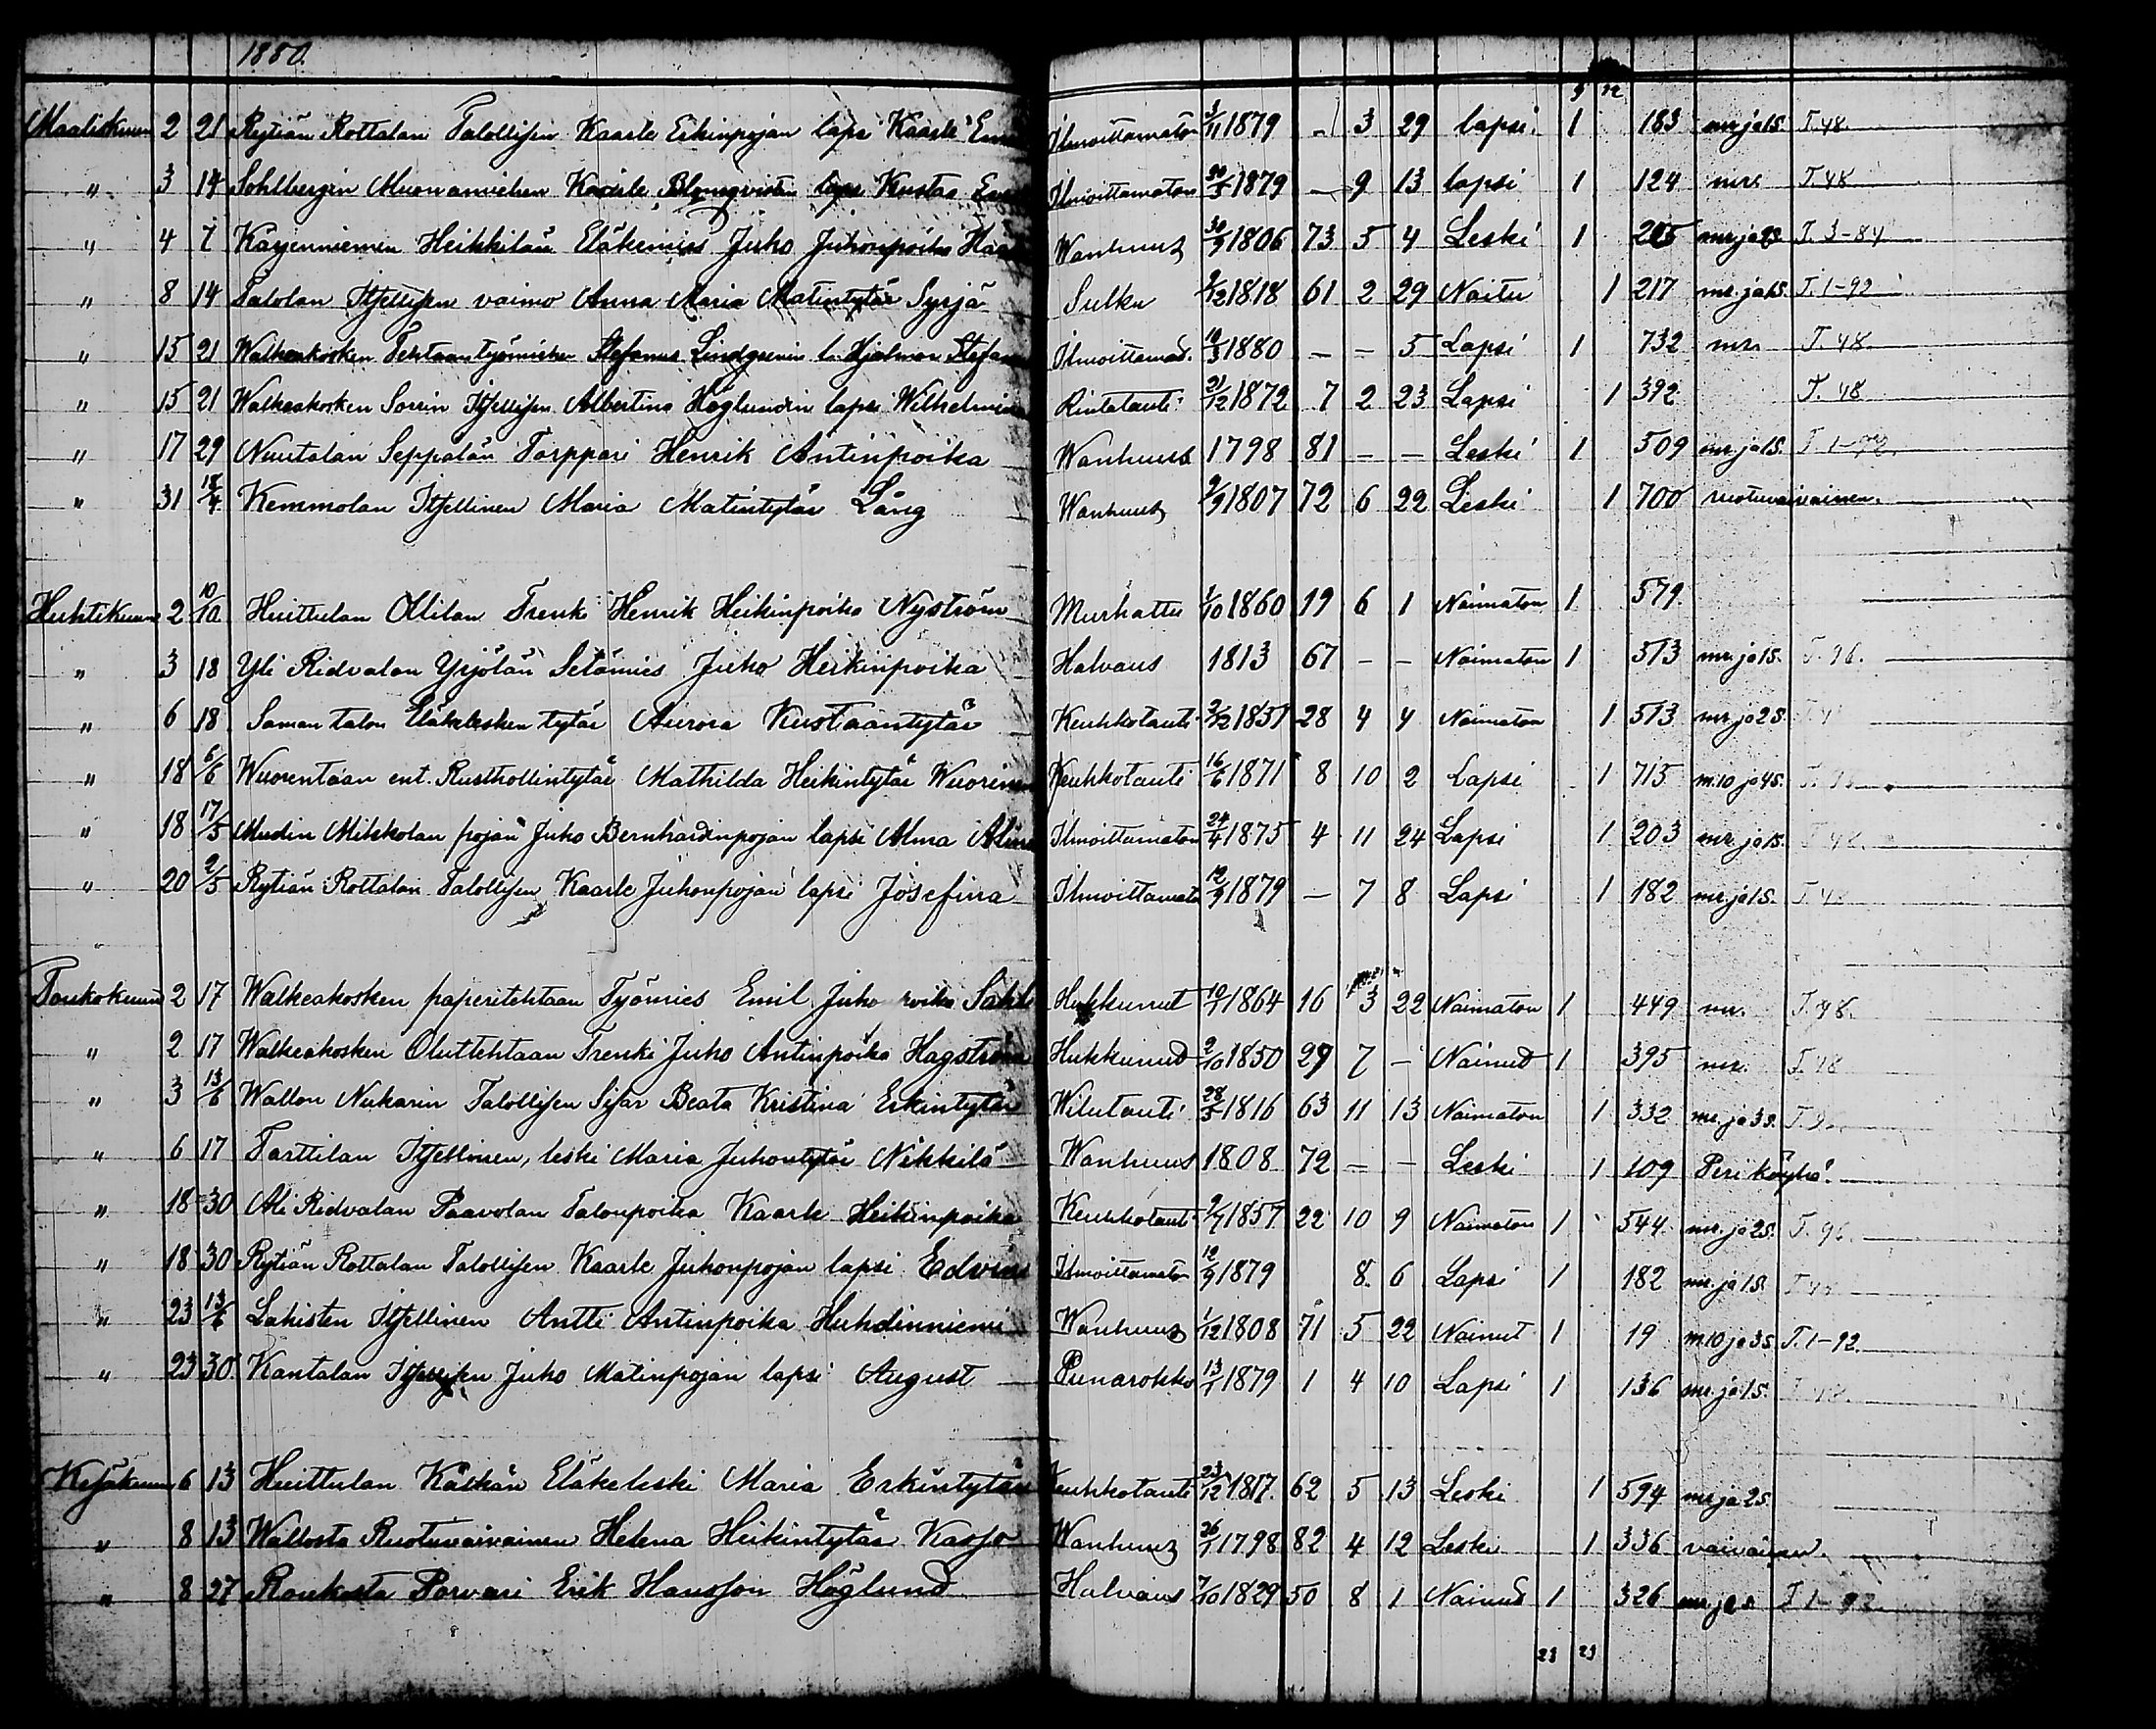 1880.
9 12
Maaliskuun 2 21 Rytiän Rottalan Talollisen Kaarle Erkinpojan lapsi Kaarle Ilmoittamaton 3/11 1879 - 3 29 lapsi 1 183 mr. ja 1 S. T. 48.
" 3 14 Sohlbergin Muonamiehen Kaarle Blomqvistin lapsi Kustaa Ilmoittamaton 20/5 1879 — 9 13 lapsi 1 124 mr. T. 48
" 4 7 Kärjenniemen Heikkilän Eläkemies Juho Juhonpoika Wanhuus 30/9 1806 73 5 4 Leski 1 mr. ja T. 3-84
" 8 14 Talolan Itsellisen vaimo Anna Maria Matintytär Syrjä Sulku 9/12 1818 61 2 29 Naitu 1 217 mr. ja 1 S. T. 1-92
" 15 21 Walkeakosken Tehtaan työmiehen Stefanus Lindgrenin l. Hjalmar Ilmoittamat. 10/3 1880 — — 5 Lapsi 1 732 mr. T. 48.
" 15 21 Walkeakosken Sorrin Itsellisen Albertina Höglundin lapsi Wilhelmina Rintatauti 21/12 1872 7 2 23 Lapsi 1 392 T. 48
" 17 29 Nuutalan Seppälän Torppari Henrik Antinpoika Wanhuus 1798 81 — — Leski 1 509 mr. ja 1 S. T. 1-92.
" 31 18/4 Kemmolan Itsellinen Maria Matintytär Lång Wanhuus 9/9 1807 72 6 22 Leski 1 700 ruotuvaivainen.
Huhtikuun 2 10/10 Huittulan Ollilan Trenki Henrik Heikinpoika Nyström Murhattu 1/10 1860 19 6 1 Naimaton 1 579.
" 3 18 Yli Ridvalan Yrjölän Setämies Juho Heikinpoika Halvaus 1813 67 — — Naimaton 1 513 mr. ja 1 S. T. 96.
" 6 18 Saman talon Eläkelesken tytär Aurora Kustaantytär Keuhkotauti 2/12 1851 28 4 4 Naimaton 1 513 mr. ja 2 S.
" 18 6/6 Wuorentaan ent. Rusthollintytär Mathilda Heikintytär Wuorinen Keuhkotauti 16/6 1871 8 10 2 Lapsi 1 715 m. 10 ja 4 S.
" 18 17/5 Mudin Mikkolan pojan Juho Bernhardinpojan lapsi Alma Ilmoittamaton 24/4 1875 4 11 24 Lapsi 1 203 mr. ja 1 S. T. 48.
" 20 2/5 Rytiän Rottalan Talollisen Kaarle Juhonpojan lapsi Josefina Ilmoittamato 12/9 1879 — 7 8 Lapsi 1 182 mr. ja 1 S. T. 48
Toukokuun 2 17 Walkeakosken paperitehtaan Työmies Emil Juho Hukkunut 10/1 1864 16 3 22 Naimaton 1 449 mr. T. 48.
" 2 17 Walkeakosken Oluttehtaan Trenki Juho Antinpoika Hagström Hukkunut 2/10 1850 29 7 — Nainut 1 395 mr. T. 48
" 3 13/6 Wallon Nukarin Talollisen Sisar Beata Kristina Erkintytär Wilutauti 28/5 1816 63 11 13 Naimaton 1 332 mr. ja 3 S.
" 6 17 Tarttilan Itsellinen, leski Maria Juhontytär Nikkilä Wanhuus 1808 72 — — Leski 1 109 Peri köyhä.
" 18 30 Ali Ridvalan Paavolan Talonpoika Kaarle Heikinpoika Keuhkotauti 9/7 1857 22 10 9 Naimaton 1 544 mr. ja 2 S. T. 96.
" 18 30 Rytiän Rottalan Talollisen Kaarle Juhonpojan lapsi Edvin Ilmoittamaton 12/9 1879 8. 6 Lapsi 1 182 mr. ja 1 S. T. 48
" 23 13/6 Lahisten Itsellinen Antti Antinpoika Huhdinniemi Wanhuus 1/12 1808 71 5 22 Nainut 1 19 m. 10 ja 3 S. T. 1-92.
" 23 30 Kantalan Itsellisen Juho Matinpojan lapsi August Punarokko 13/1 1879 1 4 10 Lapsi 1 136 mr. ja 1 S. T. 48.
Kesäkuun 6 13 Huittulan Kätkän Eläkeleski Maria Erkintytär Keuhkotauti 23/12 1817. 62 5 13 Leski 1 594 mr. ja 2 S.
" 8 13 Wallosta Ruotuvaivainen Helena Heikintytär Wanhuus 26/1 1798 82 4 12 Leski 1 336 vaivainen.
" 8 27 Roukosta Porvari Erik Hansson Höglund Halvaus 7/10 1829 50 8 1 Nainut 1 326 T 1-92.
23 23